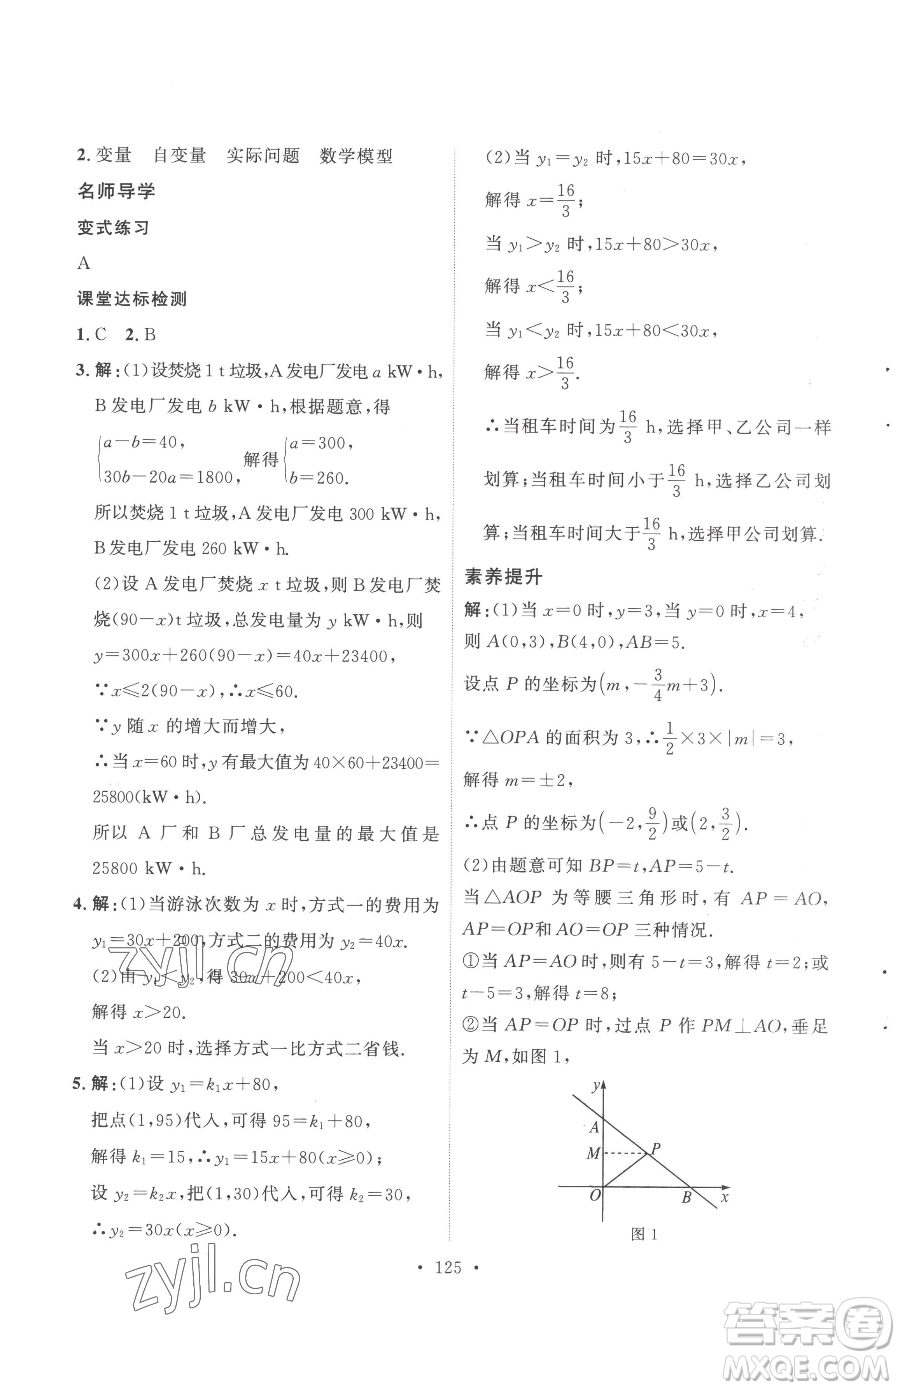 2. 变量 自变量 实际问题 数学模型
名师导学
变式练习
A
课堂达标检测
1. C 2. B
3. 解:(1)设焚烧 1 t 垃圾,A 发电厂发电 a kW·h,
B 发电厂发电 b kW·h,根据题意,得
{a-b=40, 30b-20a=1800. 解得 {a=300, b=260.
所以焚烧 1 t 垃圾,A 发电厂发电 300 kW·h,
B 发电厂发电 260 kW·h.
(2)设 A 发电厂焚烧 x t 垃圾,则 B 发电厂焚
烧(90-x)t 垃圾,总发电量为 y kW·h,则
y=300x+260(90-x)=40x+23400.
∵x≤2(90-x),∴x≤60.
∵y 随 x 的增大而增大,
∴当 x=60 时,y 有最大值为 40×60+23400=
25800(kW·h).
所以 A 厂和 B 厂总发电量的最大值是
25800 kW·h.
4. 解:(1)当游泳次数为 x 时,方式一的费用为
y₁=30x+200,方式二的费用为 y₂=40x.
(2)由 y₁<y₂,得 30x+200<40x,
解得 x>20.
当 x>20 时,选择方式一比方式二省钱.
5. 解:(1)设 y₁=k₁x+80,
把点(1,95)代入,可得 95=k₁+80,
解得 k₁=15,∴y₁=15x+80(x≥0);
设 y₂=k₂x,把(1,30)代入,可得 k₂=30,
∴y₂=30x(x≥0).
(2)当 y₁=y₂ 时,15x+80=30x,
解得 x=16/3;
当 y₁>y₂ 时,15x+80>30x,
解得 x<16/3;
当 y₁<y₂ 时,15x+80<30x,
解得 x>16/3.
∴当租车时间为 16/3 h,选择甲、乙公司一样
划算;当租车时间小于 16/3 h,选择乙公司划
算;当租车时间大于 16/3 h,选择甲公司划算.
素养提升
解:(1)当 x=0 时,y=3,当 y=0 时,x=4,
则 A(0,3),B(4,0),AB=5.
设点 P 的坐标为(m,-3/4m+3).
∵△OPA 的面积为 3,∴1/2×3×|m|=3,
解得 m=±2,
∴点 P 的坐标为(-2,9/2)或(2,3/2).
(2)由题意可知 BP=t,AP=5-t.
当△AOP 为等腰三角形时,有 AP=AO,
AP=OP 和 AO=OP 三种情况.
①当 AP=AO 时,则有 5-t=3,解得 t=2;或
t-5=3,解得 t=8;
②当 AP=OP 时,过点 P 作 PM⊥AO,垂足
为 M,如图 1,
y
A
M
P
O
B
x
图 1
· 125 ·
zyjl.cn
zyjl.cn
答案圈
MXQE.COM